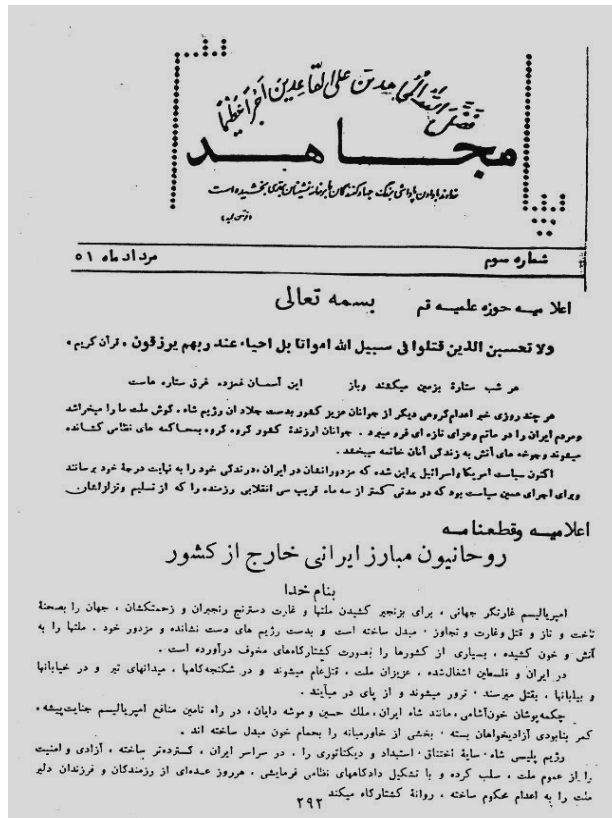 فضل الله المجاهدین علی القاعدین اجرا عظیما
مجاهد
خداوند با دادن پاداشی بزرگ جهادکنندگان را بر خانه نشینان برتری بخشیده است
شماره سوم
مرداد ماه ۵۱
اعلامیه حوزه علمیه قم
بسمه تعالی
ولا تحسبن الذین قتلوا فی سبیل الله امواتا بل احیاء عند ربهم یرزقون ، قرآن کریم ،
هر شب ستارۀ بزمین میکشند وباز این آسمان غمزده غرق ستاره هاست
هر چند روزی خبر اعدام گروهی دیگر از جوانان عزیز کشور بدست جلادان رژیم شاه ، گوش ملت ما را میخراشد
ومردم ایران را در ماتم وعزای تازه ای فرو میبرد . جوانان ارزندۀ کشور گروه گروه بمحاکمه های نظامی کشانده
میشوند وجوخه های آتش به زندگی آنان خاتمه میبخشد .
اکنون سیاست امریکا واسرائیل براین شده که مزدورانشان در ایران ، درندگی خود را به نهایت درجۀ خود برسانند
وبرای اجرای همین سیاست بود که در مدتی کمتر از سه ماه قریب سی انقلابی رزمنده را که از تسلیم وتزلزلشان
اعلامیه وقطعنامه
روحانیون مبارز ایرانی خارج از کشور
بنام خدا
امپریالیسم غارتگر جهانی ، برای بزنجیر کشیدن ملتها و غارت دسترنج رنجبران و زحمتکشان ، جهان را بصحنۀ
تاخت و تاز و قتل وغارت و تجاوز ، مبدل ساخته است و بدست رژیم های دست نشانده و مزدور خود ، ملتها را به
آتش و خون کشیده ، بسیاری از کشورها را بصورت کشتارگاه‌های مخوف درآورده است .
در ایران و فلسطین اشغال‌شده ، عزیزان ملت ، قتل‌عام میشوند و در شکنجه‌گاهها ، میدانهای تیر و در خیابانها
و بیابانها ، بقتل میرسند ، ترور میشوند و از پای در میآیند .
چکمه‌پوشان خون‌آشامی ، مانند شاه ایران ، ملك حسین و موشه دایان ، در راه تامین منافع امپریالیسم جنایت‌پیشه ،
کمر بنابودی آزادیخواهان بسته ، بخشی از خاورمیانه را بحمام خون مبدل ساخته اند .
رژیم پلیسی شاه ، سایۀ اختناق ، استبداد و دیکتاتوری را ، در سراسر ایران ، گسترده‌تر ساخته ، آزادی و امنیت
را از عموم ملت ، سلب کرده و با تشکیل دادگاههای نظامی فرمایشی ، هرروز عده‌ای از رزمندگان و فرزندان دلیر
ملت را به اعدام محکوم ساخته ، روانۀ کشتارگاه میکند
۲۹۲